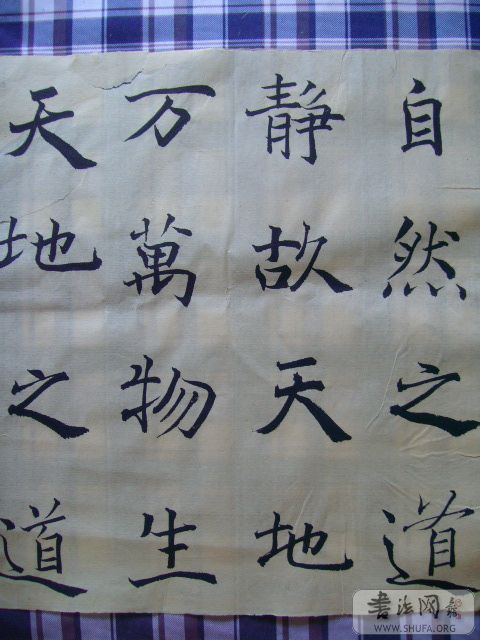 自然之道
静故天地
万萬物生
天地之道
書法网
WWW.SHUFA.ORG